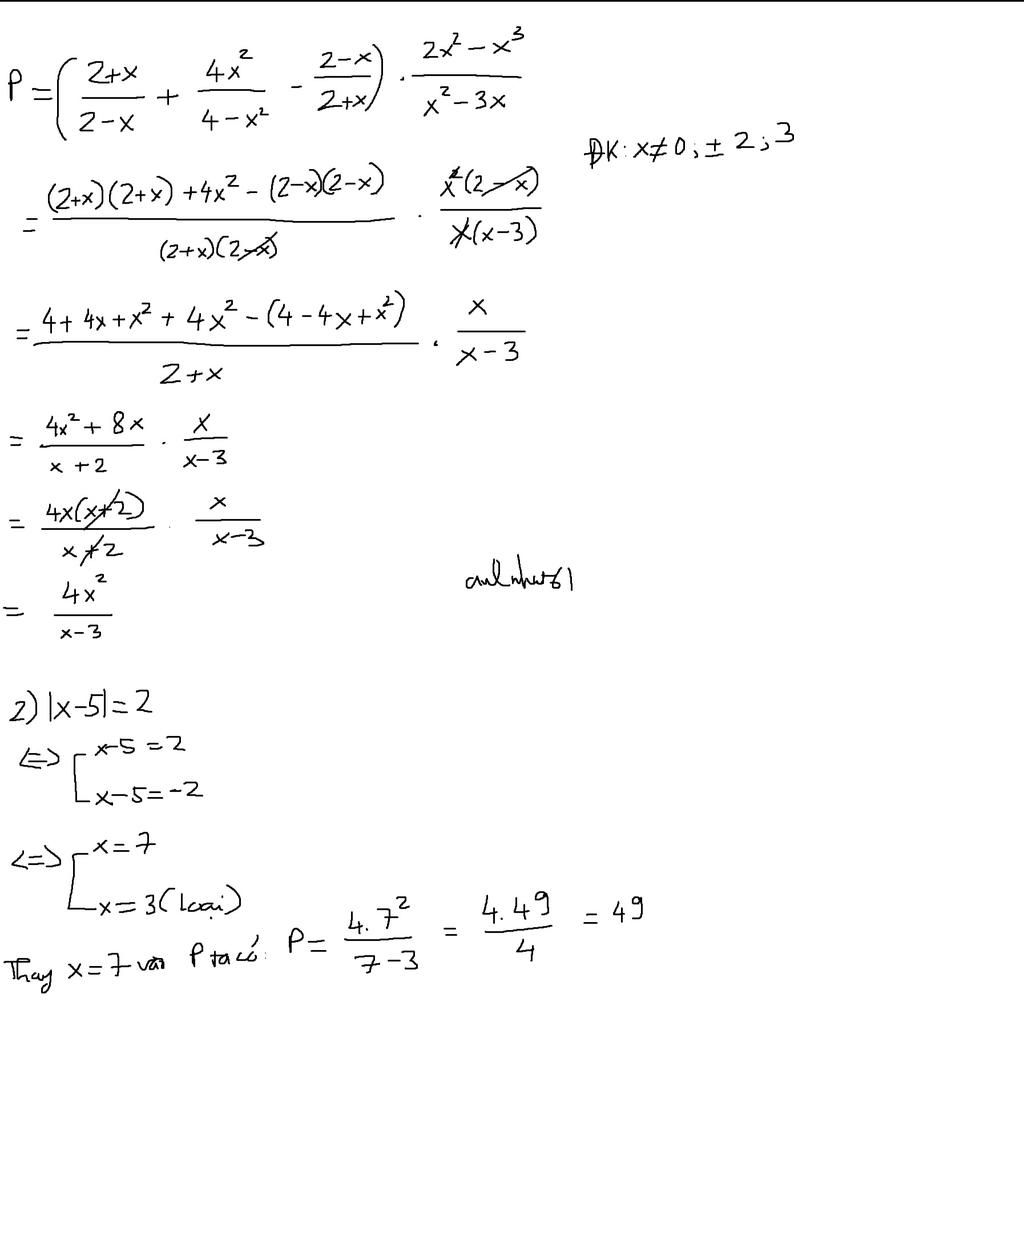 P = ( (2+x)/(2-x) + 4x²/(4-x²) - (2-x)/(2+x) ) . (2x²-x³)/(x²-3x)
ĐK: x≠0; ±2; 3
= ((2+x)(2+x)+4x²-(2-x)(2-x))/((2+x)(2-x)) . (x²(2-x))/(x(x-3))
= (4+4x+x²+4x²-(4-4x+x²))/(2+x) . x/(x-3)
= (4x²+8x)/(x+2) . x/(x-3)
= (4x(x+2))/(x+2) . x/(x-3)
= 4x²/(x-3)
2) |x-5|=2
<=> [ x-5=2
x-5=-2
<=> [ x=7
x=3 (loại)
Thay x=7 vào P ta có: P = (4.7²)/(7-3) = (4.49)/4 = 49